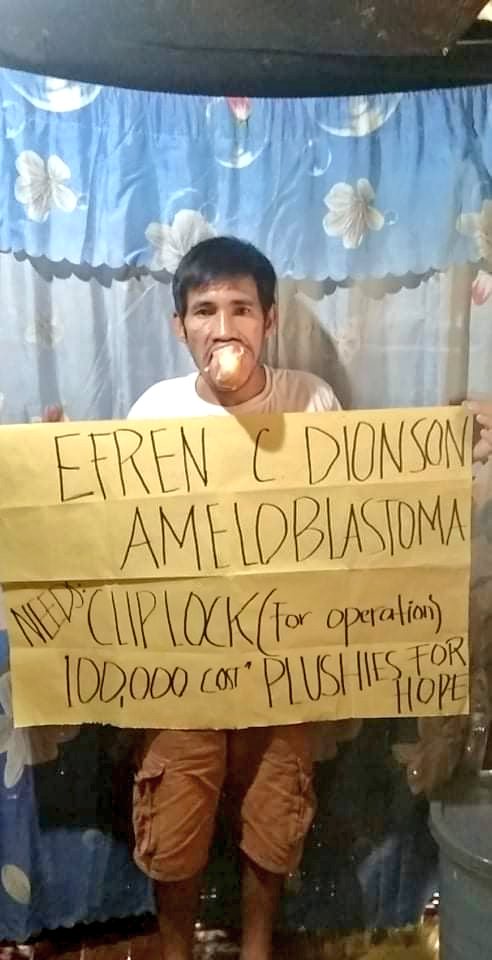 EFREN C. DIONSON
AMELOBLASTOMA
NEEDS: CLIPLOCK (For operation)
100,000 COST" PLUSHIES FOR
HOPE